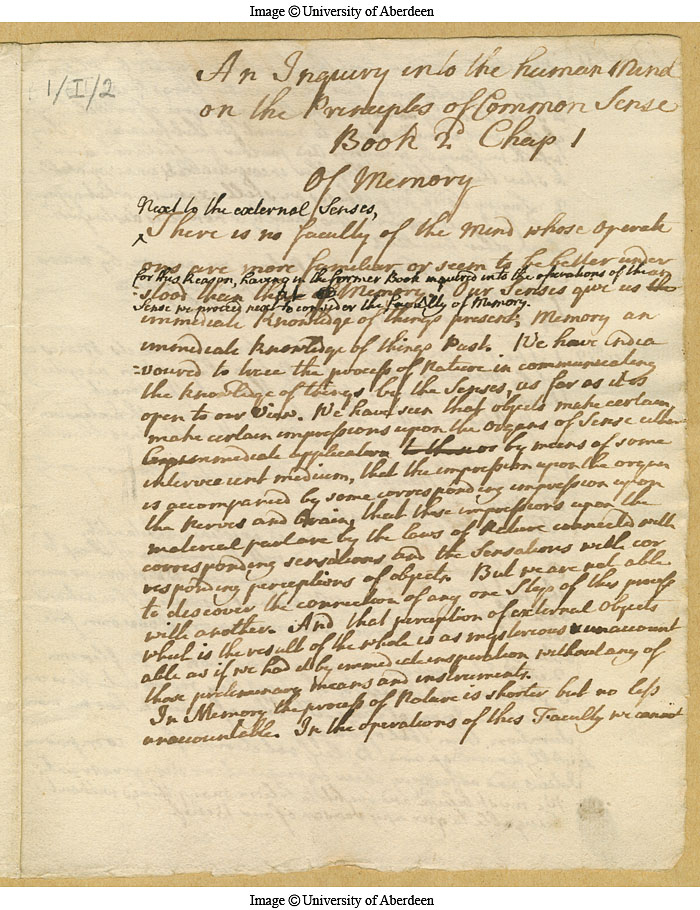 Image © University of Aberdeen
1/I/2
An Inquiry into the human Mind
on the Principles of Common Sense
Book 2d Chap 1
Of Memory
Next to the external Senses,
^ There is no faculty of the Mind whose operati
ons are more familiar or seem to be better under
for this Reason, having in the former Book inquired into the operations of the
stood than Memory. Our Senses give us
Sense we proceed next to consider the faculty of Memory.
immediate knowledge of things present; Memory an
immediate knowledge of things Past. We have endea
=voured to trace the process of Nature in communicating
the knowledge of things by the Senses, as far as it is
open to our View. We have seen that objects make certain
make certain impressions upon the organs of Sense either
immediate application or by means of some
intervenient medium, that the impression upon the organ
is accompanied by some corresponding impression upon
the Nerves and Brain, that these impressions upon the
material part are by the laws of Nature connected with
corresponding sensations and the Sensations with cor
responding perceptions of objects. But we are not able
to discover the connection of any one Step of this process
with another. And that perception of external Objects
which is the result of the whole is as mysterious & unaccount
able as if we had it by immediate inspiration without any of
those preliminary means and instruments.
In Memory the process of Nature is shorter but no less
unaccountable. In the operations of this Faculty we cannot
Image © University of Aberdeen